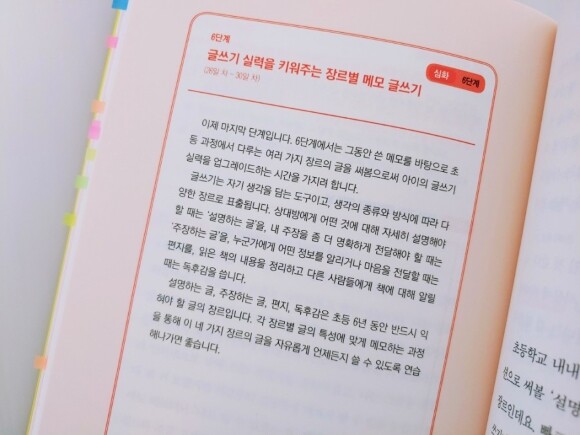 6단계
글쓰기 실력을 키워주는 장르별 메모 글쓰기
(26일 차 ~ 30일 차)
심화 6단계
이제 마지막 단계입니다. 6단계에서는 그동안 쓴 메모를 바탕으로 초
등 과정에서 다루는 여러 가지 장르의 글을 써봄으로써 아이의 글쓰기
실력을 업그레이드하는 시간을 가지려 합니다.
글쓰기는 자기 생각을 담는 도구이고, 생각의 종류와 방식에 따라 다
양한 장르로 표출됩니다. 상대방에게 어떤 것에 대해 자세히 설명해야
할 때는 '설명하는 글'을, 내 주장을 좀 더 명확하게 전달해야 할 때는
'주장하는 글'을, 누군가에게 어떤 정보를 알리거나 마음을 전달할 때는
편지를, 읽은 책의 내용을 정리하고 다른 사람들에게 책에 대해 알릴
때는 독후감을 씁니다.
설명하는 글, 주장하는 글, 편지, 독후감은 초등 6년 동안 반드시 익
혀야 할 글의 장르입니다. 각 장르별 글의 특성에 맞게 메모하는 과정
을 통해 이 네 가지 장르의 글을 자유롭게 언제든지 쓸 수 있도록 연습
해나가면 좋습니다.
초등학교 내내
션으로 써볼 '설명
장르인데요,